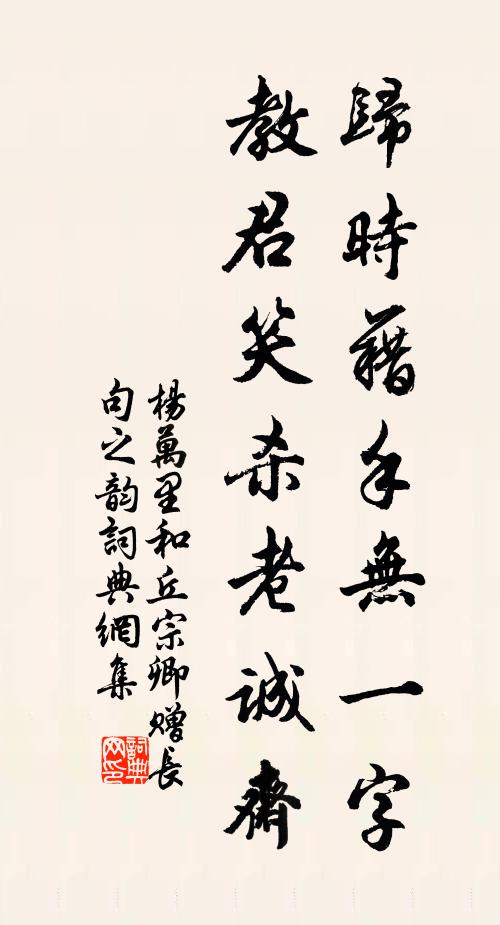 歸時藉手無一字
教君笑杀老誠齋
楊萬里和丘宗卿赠長
句之韵詞典網集
詞典網印